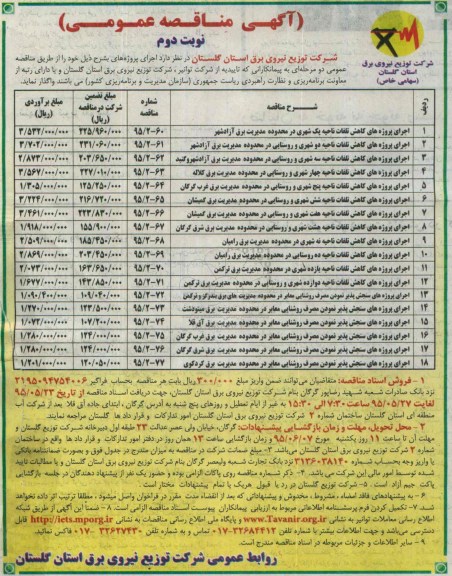 (آگهی مناقصه عمومی)
نوبت دوم
شرکت توزیع نیروی برق
استان گلستان
(سهامی خاص)
شرکت توزیع نیروی برق استان گلستان در نظر دارد اجرای پروژه‌های بشرح ذیل خود را از طریق مناقصه
عمومی دو مرحله‌ای به پیمانکارانی که تاییدیه از شرکت توانیر، شرکت توزیع نیروی برق استان گلستان و یا دارای رتبه از
معاونت برنامه‌ریزی و نظارت راهبردی ریاست جمهوری (سازمان مدیریت و برنامه‌ریزی کشور) می باشند واگذار نماید.
ردیف شرح مناقصه شماره مناقصه مبلغ تضمین شرکت در مناقصه (ریال) مبلغ برآوردی (ریال)
۱ اجرای پروژه های کاهش تلفات ناحیه یک شهری در محدوده مدیریت برق آزادشهر ۹۵/۲-۶۰ ۲۲۵/۹۶۰/۰۰۰ ۳/۵۳۲/۰۰۰/۰۰۰
۲ اجرای پروژه های کاهش تلفات ناحیه دو شهری و روستایی در محدوده مدیریت برق آزادشهر ۹۵/۲-۶۱ ۲۳۱/۰۶۰/۰۰۰ ۳/۷۰۲/۰۰۰/۰۰۰
۳ اجرای پروژه های کاهش تلفات ناحیه سه شهری و روستایی در محدوده مدیریت برق آزادشهروگنبد ۹۵/۲-۶۲ ۲۰۳/۶۵۰/۰۰۰ ۲/۸۷۳/۰۰۰/۰۰۰
۴ اجرای پروژه های کاهش تلفات ناحیه چهار شهری و روستایی در محدوده مدیریت برق کلاله ۹۵/۲-۶۳ ۲۲۷/۰۱۰/۰۰۰ ۳/۵۶۷/۰۰۰/۰۰۰
۵ اجرای پروژه های کاهش تلفات ناحیه پنج شهری و روستایی در محدوده مدیریت برق غرب گرگان ۹۵/۲-۶۴ ۱۲۵/۲۵۰/۰۰۰ ۱/۳۰۵/۰۰۰/۰۰۰
۶ اجرای پروژه های کاهش تلفات ناحیه شش شهری و روستایی در محدوده مدیریت برق گمیشان ۹۵/۲-۶۵ ۲۱۶/۷۲۰/۰۰۰ ۳/۲۲۴/۰۰۰/۰۰۰
۷ اجرای پروژه های کاهش تلفات ناحیه هفت شهری و روستایی در محدوده مدیریت برق گمیشان ۹۵/۲-۶۶ ۲۲۳/۸۳۰/۰۰۰ ۳/۴۶۱/۰۰۰/۰۰۰
۸ اجرای پروژه های کاهش تلفات ناحیه هشت شهری و روستایی در محدوده مدیریت برق شرق گرگان ۹۵/۲-۶۷ ۱۵۵/۹۰۰/۰۰۰ ۱/۹۱۸/۰۰۰/۰۰۰
۹ اجرای پروژه های کاهش تلفات ناحیه نه شهری در محدوده مدیریت برق رامیان ۹۵/۲-۶۸ ۱۸۵/۴۵۰/۰۰۰ ۲/۵۰۹/۰۰۰/۰۰۰
۱۰ اجرای پروژه های کاهش تلفات ناحیه ده روستایی در محدوده مدیریت برق رامیان ۹۵/۲-۶۹ ۲۰۳/۴۵۰/۰۰۰ ۲/۸۶۹/۰۰۰/۰۰۰
۱۱ اجرای پروژه های کاهش تلفات ناحیه یازده شهری در محدوده مدیریت برق ترکمن ۹۵/۲-۷۰ ۱۶۳/۶۵۰/۰۰۰ ۲/۰۷۳/۰۰۰/۰۰۰
۱۲ اجرای پروژه های کاهش تلفات ناحیه دوازده شهری و روستایی در محدوده مدیریت برق ترکمن ۹۵/۲-۷۱ ۱۴۳/۸۵۰/۰۰۰ ۱/۶۷۷/۰۰۰/۰۰۰
۱۳ اجرای پروژه های سنجش پذیر نمودن مصرف روشنایی معابر در محدوده مدیریت های برق بندرگز و ترکمن ۹۵/۲-۷۲ ۱۰۹/۰۲۰/۰۰۰ ۱/۰۹۰/۴۰۰/۰۰۰
۱۴ اجرای پروژه های سنجش پذیر نمودن مصرف روشنایی معابر در محدوده مدیریت برق مینودشت ۹۵/۲-۷۳ ۱۳۳/۵۰۰/۰۰۰ ۱/۴۷۰/۰۰۰/۰۰۰
۱۵ اجرای پروژه های سنجش پذیر نمودن مصرف روشنایی معابر در محدوده مدیریت برق آق قلا ۹۵/۲-۷۴ ۱۰۷/۲۰۰/۰۰۰ ۱/۰۷۲/۰۰۰/۰۰۰
۱۶ اجرای پروژه های سنجش پذیر نمودن مصرف روشنایی معابر در محدوده مدیریت برق غرب گرگان ۹۵/۲-۷۵ ۱۲۴/۰۰۰/۰۰۰ ۱/۲۸۰/۰۰۰/۰۰۰
۱۷ اجرای پروژه های سنجش پذیر نمودن مصرف روشنایی معابر در محدوده مدیریت برق شرق گرگان ۹۵/۲-۷۶ ۱۲۴/۰۰۰/۰۰۰ ۱/۲۸۰/۰۰۰/۰۰۰
۱۸ اجرای پروژه های سنجش پذیر نمودن مصرف روشنایی معابر در محدوده مدیریت برق کردکوی ۹۵/۲-۷۷ ۱۲۰/۰۵۰/۰۰۰ ۱/۲۰۱/۰۰۰/۰۰۰
۱ - فروش اسناد مناقصه: متقاضیان می‌توانند ضمن واریز مبلغ ۳۰۰/۰۰۰ ریال بابت هر مناقصه بحساب فراگیر ۲۱۹۵۰۹۴۷۵۴۰۰۶
نزد بانک صادرات شعبه شهید رضاپور گرگان بنام شرکت توزیع نیروی برق استان گلستان، جهت دریافت اسناد مناقصه از تاریخ ۹۵/۰۵/۲۳
لغایت ۹۵/۰۵/۲۷ ساعت ۷:۳۰ الی ۱۵:۳۰ به غیر از ایام تعطیل و روزهای پنج شنبه به آدرس گرگان، ابتدای جاده آق قلا، بعد از شرکت آب
منطقه ای استان گلستان ساختمان شماره ۲ شرکت توزیع نیروی برق استان گلستان امور تدارکات و قرار داد ها گلستان مراجعه نمایند.
۲ - محل تحویل، مهلت و زمان بازگشایی پیشنهادات: گرگان، خیابان ولی عصر، عدالت ۲۳ طبقه اول دبیرخانه شرکت توزیع و
مهلت آن تا ساعت ۱۱ روز یکشنبه مورخ ۹۵/۰۶/۰۷ و زمان بازگشایی ساعت ۱۳ همان روز در دفتر امور تدارکات و قرار داد ها واقع در ساختمان
شماره ۲ شرکت توزیع نیروی برق استان گلستان می‌باشد. ۳- مبلغ ضمانت شرکت در مناقصه به میزان مندرج در جدول فوق و بصورت ضمانتنامه بانکی
یا واریز وجه بحساب شماره ۳۱۳۶۰۳۸۱۴۰ نزد بانک تجارت شعبه ولیعصر گرگان بنام شرکت توزیع نیروی برق استان گلستان و یا مطالبات تایید
شده توسط امور مالی این شرکت می باشد. ۴- ذکر شماره مناقصه روی پاکات الزامی بوده و حضور یک نفر از پیشنهاد دهندگان در جلسه بازگشایی
پاکت جیم آزاد است. ۵- شرکت توزیع نیروی برق استان گلستان در رد یا قبول هریک یا تمام پیشنهادات مختار است.
۶ - به پیشنهادهای فاقد امضاء، مشروط، مخدوش و پیشنهاداتی که بعد از انقضاء مدت مقرر در فراخوان واصل میشود، مطلقا ترتیب اثر داده نخواهد
شد. ۷- تکمیل کردن فرم پرسشنامه اطلاعاتی مربوط به ارزیابی پیمانکاران پیوست اسناد مناقصه الزامی است. ۸- ضمنا این آگهی از طریق شبکه
اطلاع رسانی معاملات توانیر به نشانی www.Tavanir.org.ir و پایگاه ملی اطلاع رسانی مناقصات به نشانی http://iets.mporg.ir قابل
دسترسی می‌باشد و جهت کسب اطلاعات بیشتر با شماره تلفن ۳۲۶۸۴۴۱۲-۰۱۷ تماس و به شماره تلفن ۳۲۶۲۷۴۳۰-۰۱۷ فاکس نمائید.
۹ - سایر اطلاعات و جزئیات مربوطه در اسناد مناقصه مندرج است.
روابط عمومی شرکت توزیع نیروی برق استان گلستان